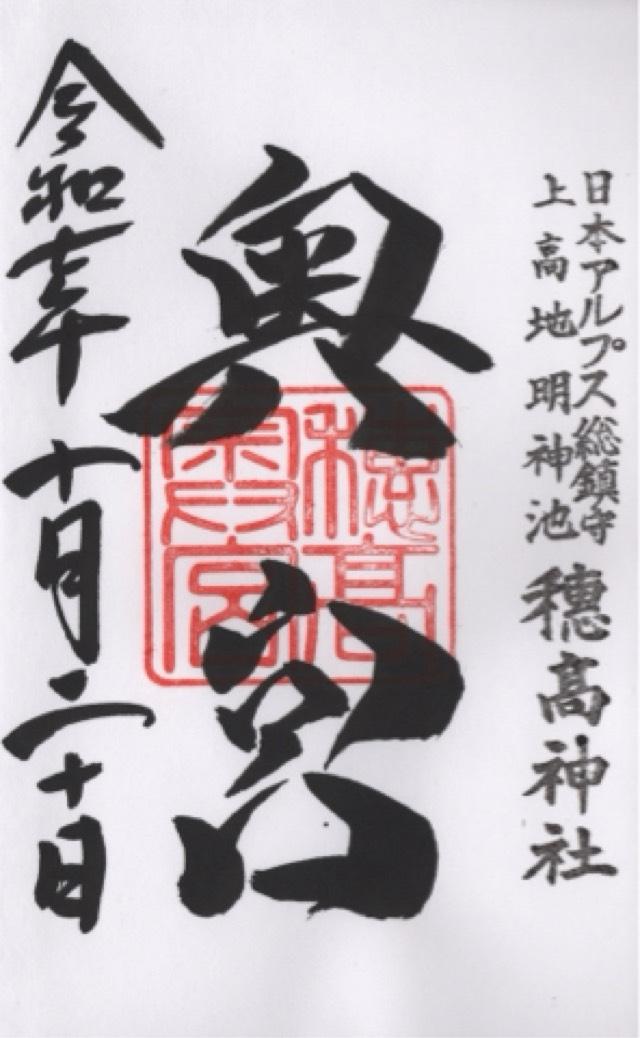 日本アルプス総鎮守
上高地明神池 穂高神社
奥宮
穂高
奥宮
令和 年 十月二十日